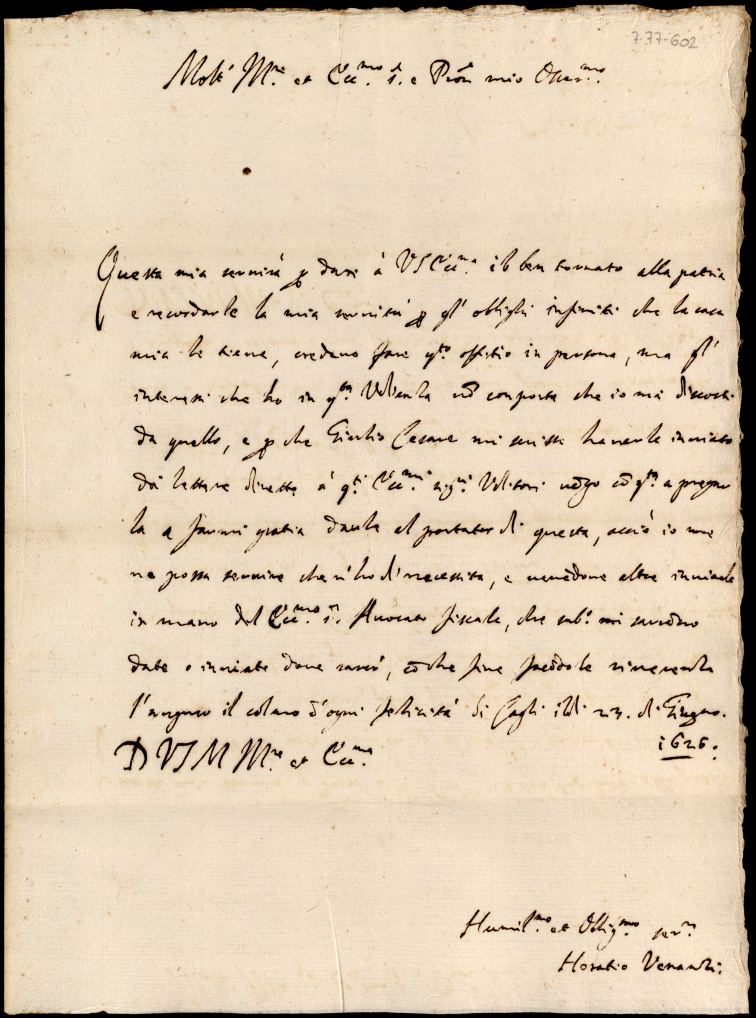 7-77-602
Molt' Ill.re et Ecc.mo s.r e Pron mio Osser.mo
Questa mia servirà p dare à VS Ecc.ma il ben tornato alla patria
e recordarle la mia servitù p gl' oblighi infiniti che la casa
mia le tiene, credevo fare q.to offitio in persona, ma gl'
interessi che ho in q.ta non comporta che io mi discosti
da quello, e p che Giulio Cesare mi scrisse haverle inviato
da lettere dirette à q.ti Ecc.mi sig.ri Uditori vengo con q.ta a pregar
la a farmi gratia darle al portator di questa, acciò io me
ne possa servire che n'ho di necessità, e venedone altre inviarle
in mano del Ecc.mo s.r Avocato fiscale, che sub.o mi
date o inviate dove sarò, con che fine facédole riverenza
l'auguro il colmo d'ogni felicità di Cagli il dì 23. di Giugno.
1626.
D VS M Ill.re et Ecc.ma
Humil.mo et Oblig.mo ser.re
Horatio